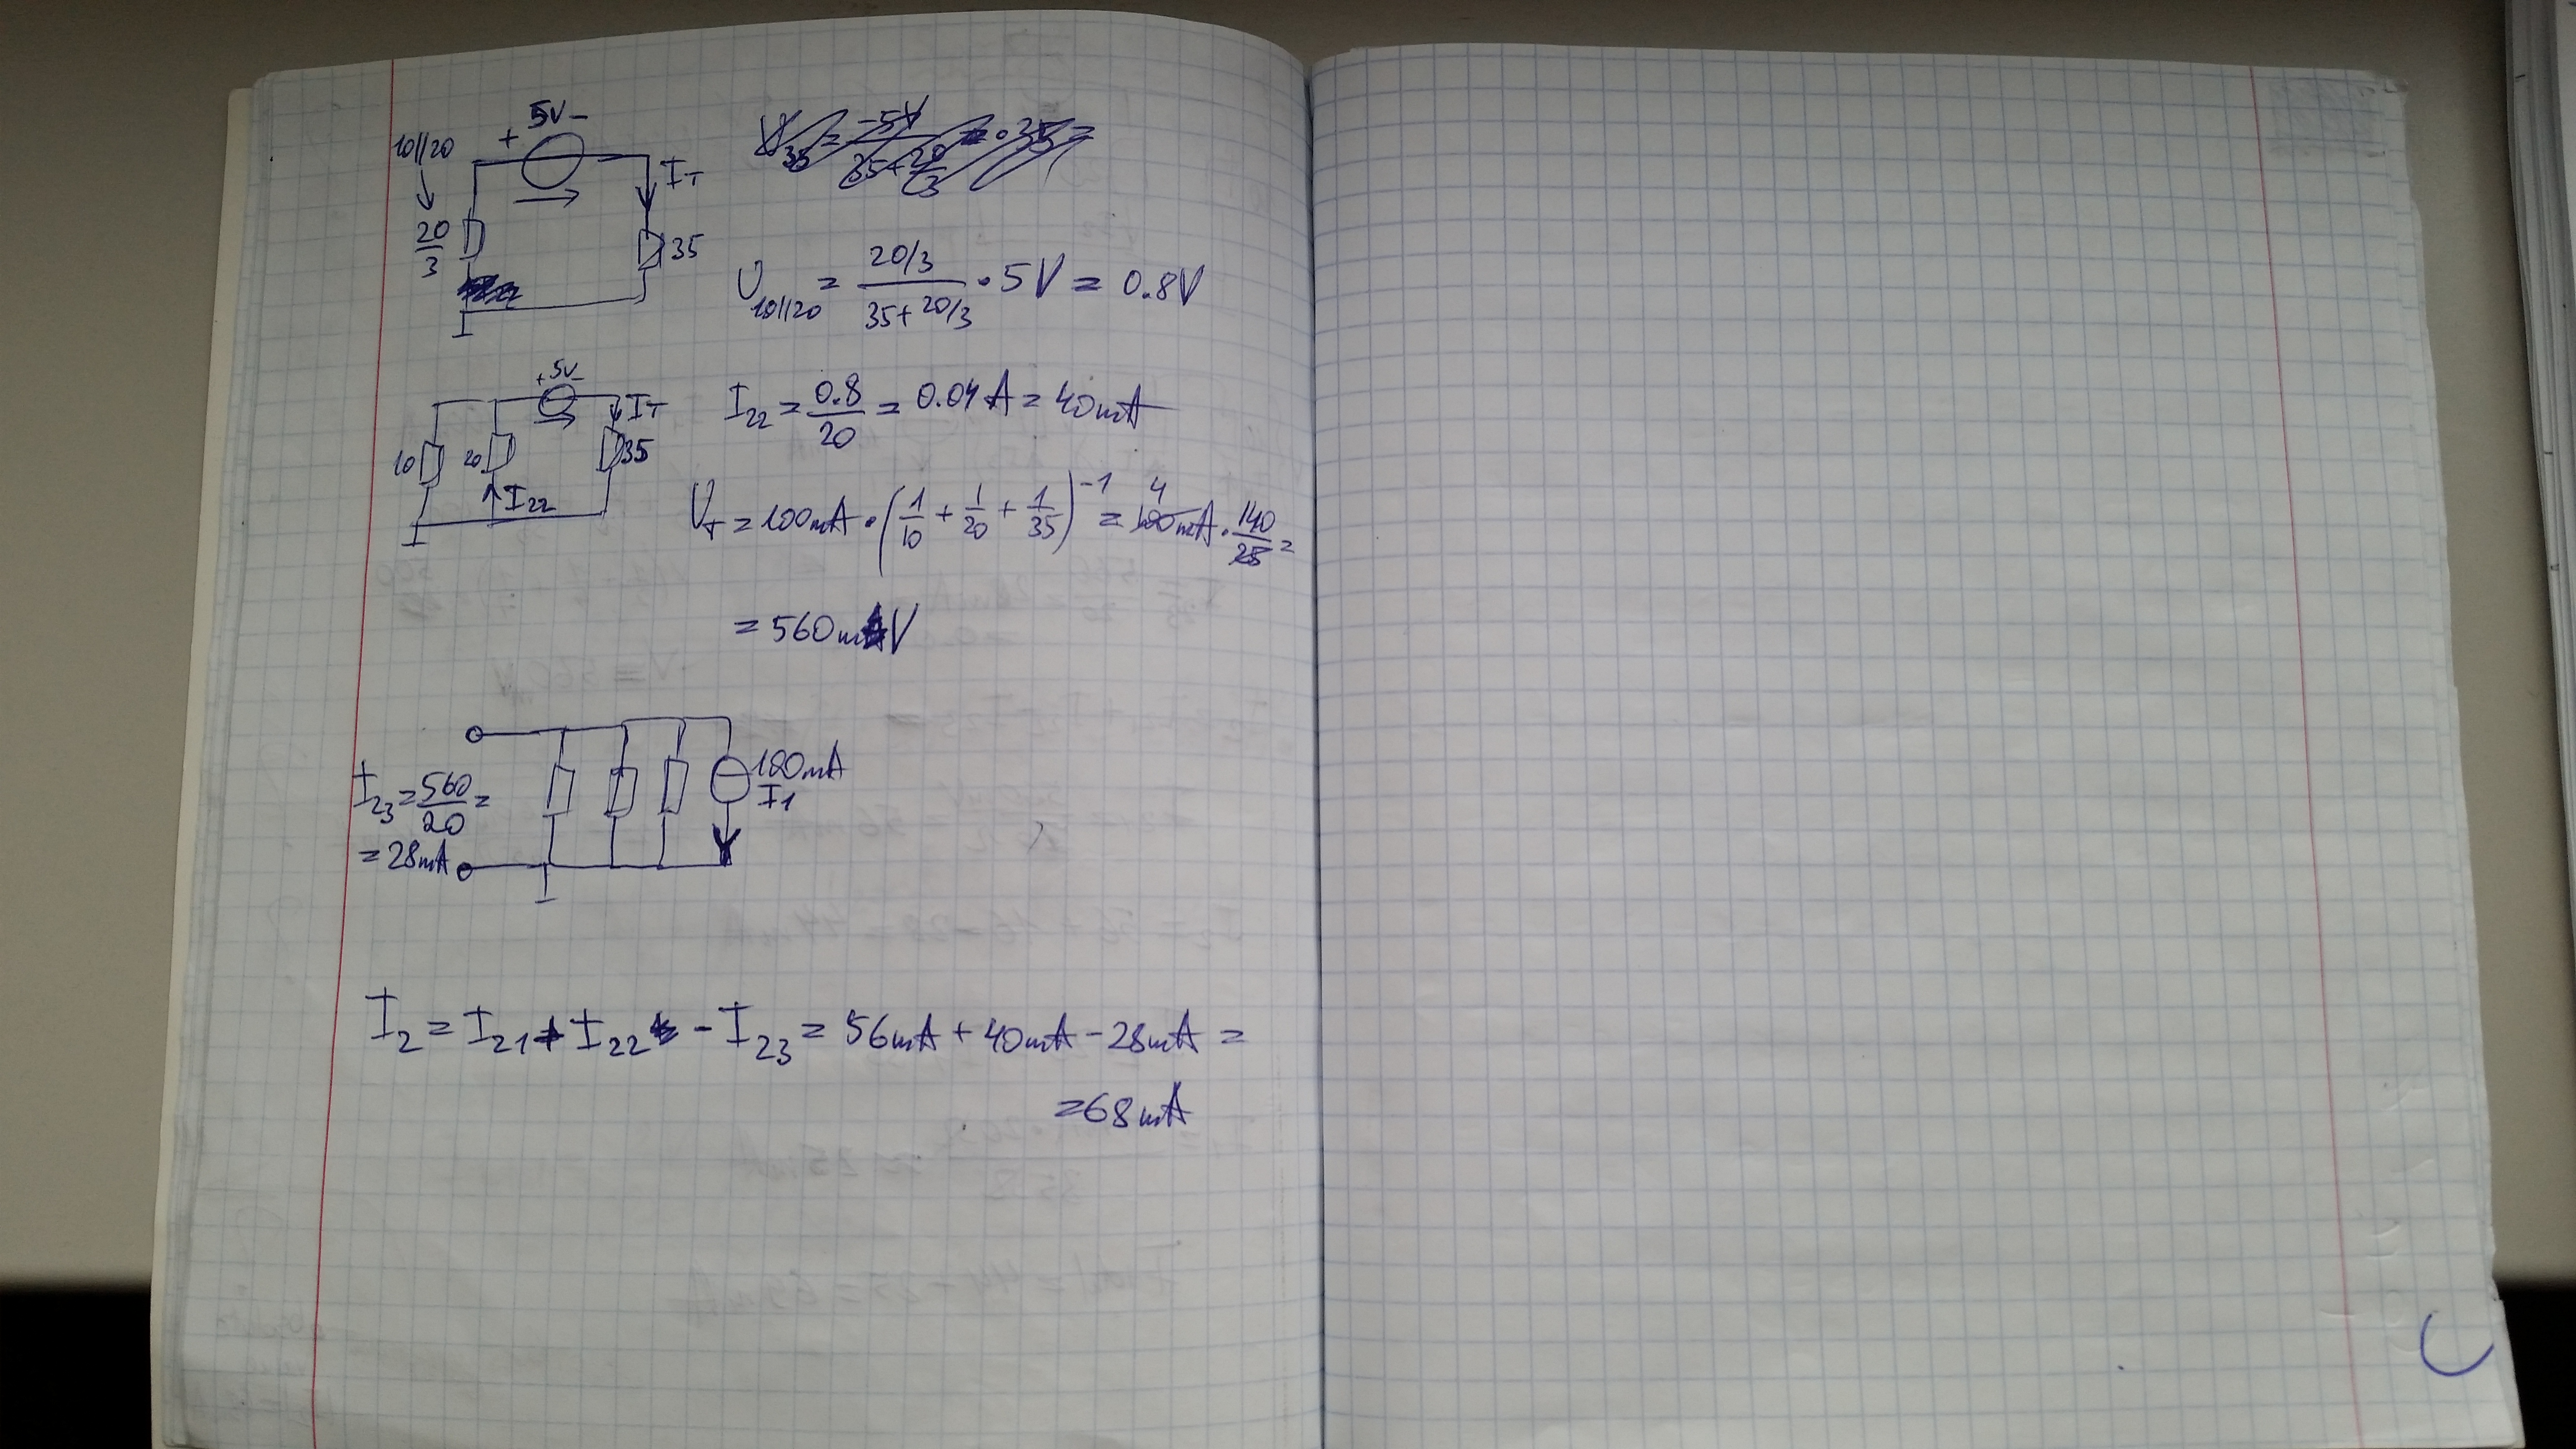 10//20
+ 5V -
I_T
20/3
35
U_10//20 = (20/3)/(35+20/3) · 5V = 0.8V
+ 5V -
I_T
10
20
35
I_22
I_22 = 0.8/20 = 0.04A = 40mA
U_T = 100mA · (1/10 + 1/20 + 1/35)^-1 = 4 100mA · 140/25 =
= 560mV
100mA
I_1
I_23 = 560/20 =
= 28mA
I_2 = I_21 + I_22 - I_23 = 56mA + 40mA - 28mA =
= 68mA